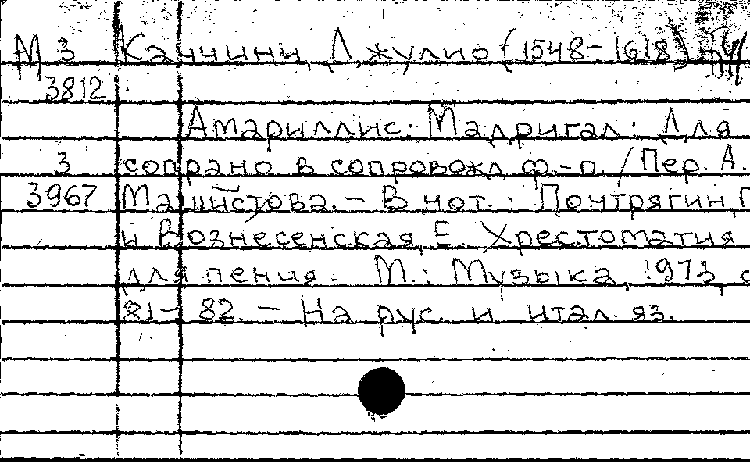 М 3 Каччини, Джулио (1548-1618)
3812
Амариллис: Мадригал: Для
3 сопрано в сопровожд. ф.-п. / Пер. А.
3967 Машистова. - В нот.: Понтрягин, П
и Вознесенская, Е. Хрестоматия
для пения. М.: Музыка, 1973, с
81-82. - На рус. и итал. яз.